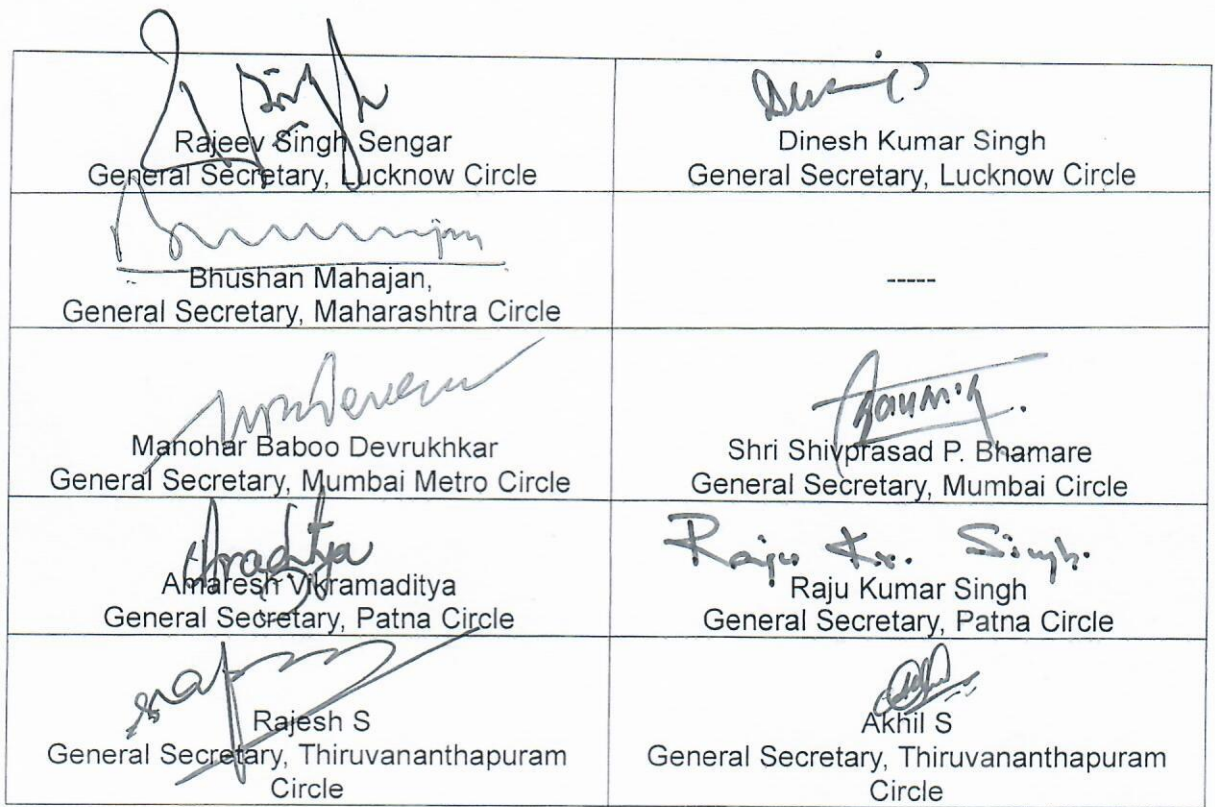 Rajeev Singh Sengar
General Secretary, Lucknow Circle
Dinesh Kumar Singh
General Secretary, Lucknow Circle
Bhushan Mahajan,
General Secretary, Maharashtra Circle
-----
Manohar Baboo Devrukhkar
General Secretary, Mumbai Metro Circle
Shri Shivprasad P. Bhamare
General Secretary, Mumbai Circle
Amaresh Vikramaditya
General Secretary, Patna Circle
Raju Kr. Singh.
Raju Kumar Singh
General Secretary, Patna Circle
Rajesh S
General Secretary, Thiruvananthapuram
Circle
Akhil S
General Secretary, Thiruvananthapuram
Circle